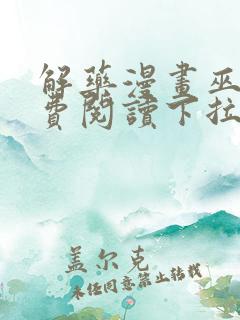 解藥漫畫巫
費閱讀下拉
盖尔克
未经同意禁止转载